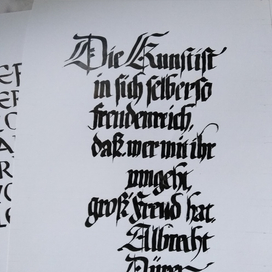 Die Kunst ist
in sich selber so
freudenreich,
daß wer mit ihr
umgeht,
groß' Freud hat.
Albrecht
Dürer